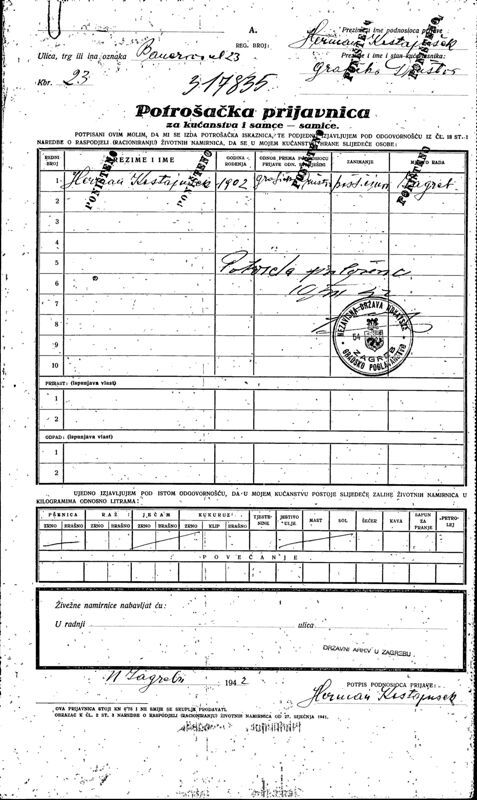 A.
Ulica, trg ili ina oznaka Bauerova ul 23
REG. BROJ:
Prezime i ime podnosioca prijave
Herman Kostajnšek
Kbr. 23
317835
Prezime i ime i stan kućevlasnika:
PONIŠTENO
PONIŠTENO
Potrošačka prijavnica
za kućanstva i samce — samice.
POTPISANI OVIM MOLIM, DA MI SE IZDA POTROŠAČKA ISKAZNICA, TE PODJEDNO IZJAVLJUJEM POD ODGOVORNOŠĆU IZ ČL. 18 ST. 1
NAREDBE O RASPODJELI (RACIONIRANJU) ŽIVOTNIH NAMIRNICA, DA SE U MOJEM KUĆANSTVU HRANE SLIJEDEĆE OSOBE:
REDNI BROJ
PREZIME I IME
GODINA ROĐENJA
ODNOS PREMA PODNOSIOCU PRIJAVE
ZANIMANJE
MJESTO RADA
1
Herman Kostajnšek
1902
Zagreb
PONIŠTENO
PONIŠTENO
PONIŠTENO
PONIŠTENO
2
3
4
5
Potvrda
6
7
8
9
10
NEZAVISNA DRŽAVA HRVATSKA
54
GRADSKO POGLAVARSTVO
ZAGREB
PRIRAST: (ispunjava vlast)
1
2
OTPAD: (ispunjava vlast)
1
2
UJEDNO IZJAVLJUJEM POD ISTOM ODGOVORNOŠĆU, DA U MOJEM KUĆANSTVU POSTOJE SLIJEDEĆE ZALIHE ŽIVOTNIH NAMIRNICA U
KILOGRAMIMA ODNOSNO LITRAMA:
PŠENICA
RAŽ
JEČAM
KUKURUZ
TJESTENINE
JESTIVO ULJE
MAST
SOL
ŠEĆER
KAVA
SAPUN ZA PRANJE
PETROLEJ
ZRNO BRAŠNO ZRNO BRAŠNO ZRNO BRAŠNO ZRNO KLIP BRAŠNO
POVEĆANJE
Živežne namirnice nabavljat ću:
U radnji
ulica
DRŽAVNI ARHIV U ZAGREBU
U Zagrebu
194 2
POTPIS PODNOSIOCA PRIJAVE:
Herman Kostajnšek
OVA PRIJAVNICA STOJI KN 0'75 I NE SMIJE SE SKUPLJE PRODAVATI.
OBRAZAC K ČL. 2 ST. 3 NAREDBE O RASPODJELI (RACIONIRANJU) ŽIVOTNIH NAMIRNICA OD 27. SIJEČNJA 1941.